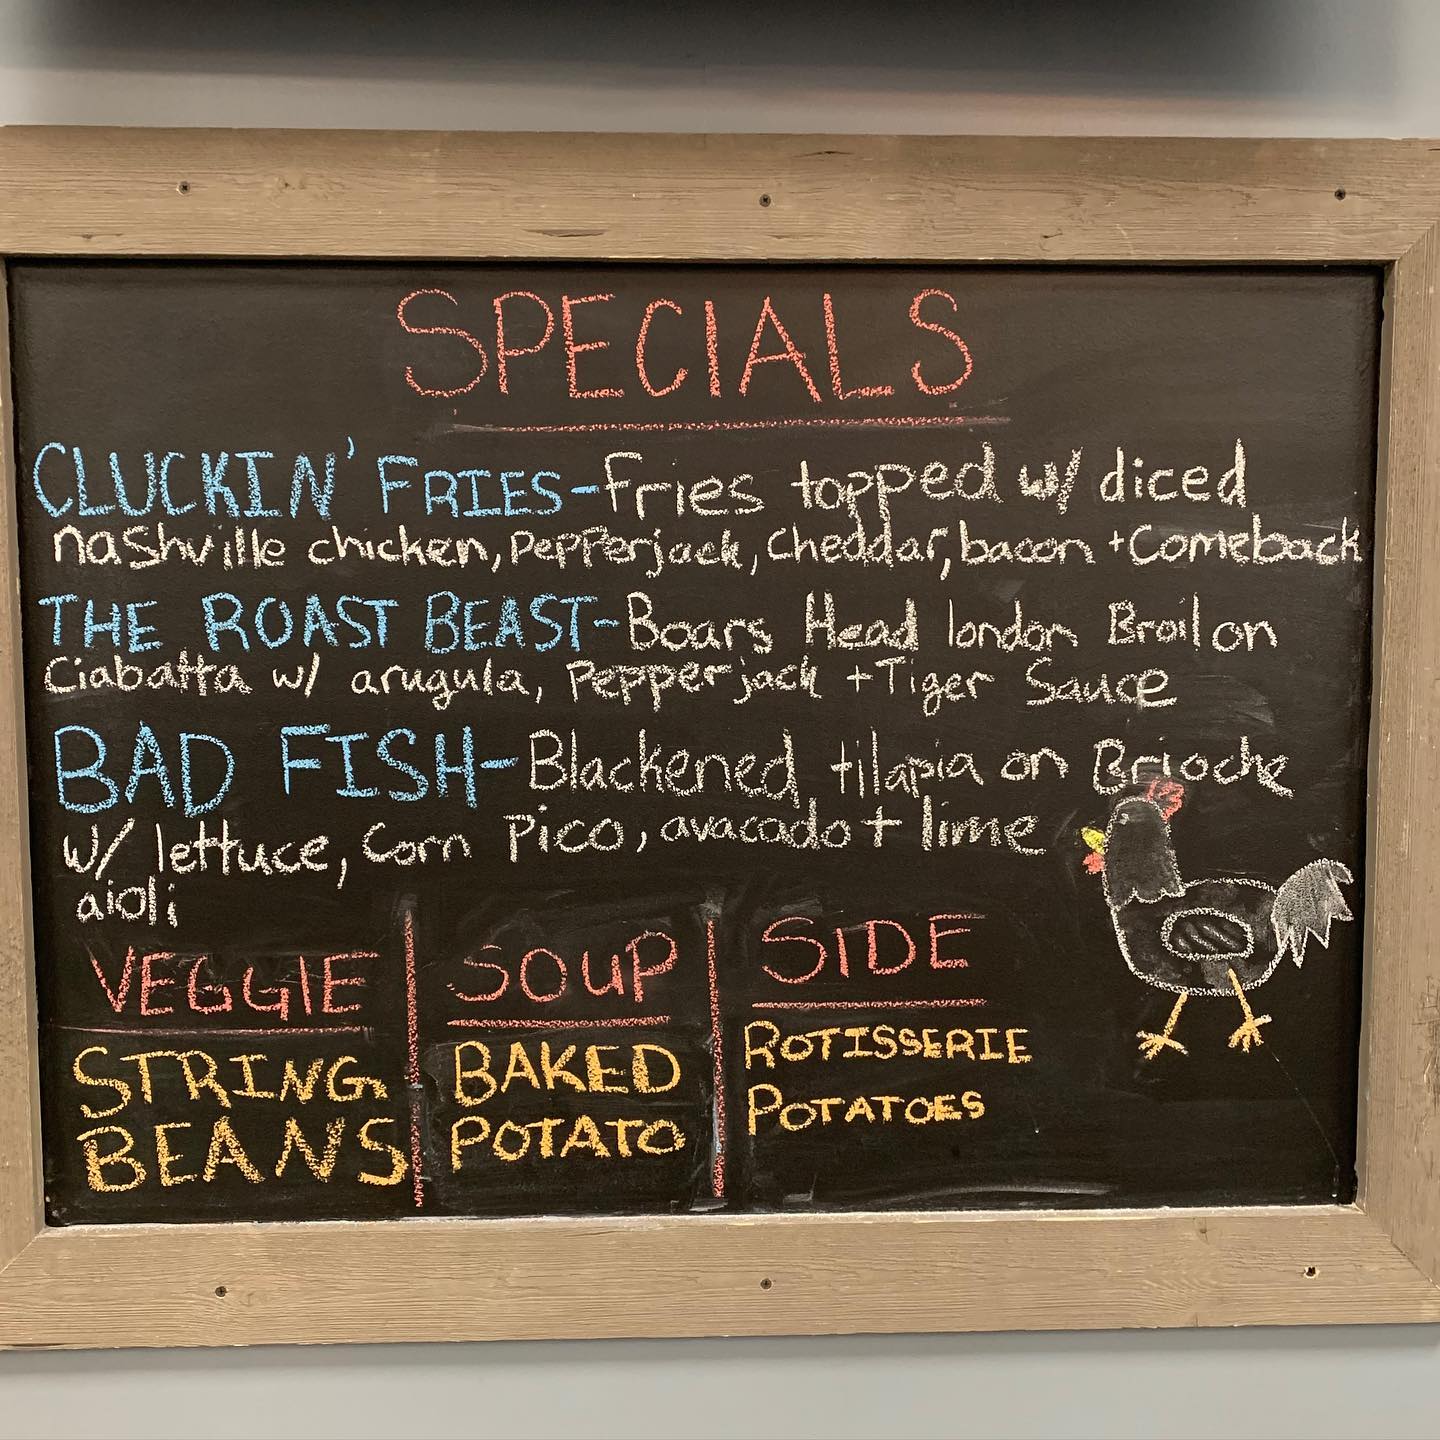 SPECIALS
CLUCKIN' FRIES-fries topped w/ diced
nashville chicken, Pepperjack, Cheddar, bacon + Comeback
THE ROAST BEAST-Boars Head london Broil on
Ciabatta w/ arugula, Pepperjack + Tiger Sauce
BAD FISH-Blackened tilapia on Brioche
w/ lettuce, Corn Pico, avacado + lime
aioli
VEGGIE
STRING
BEANS
SOUP
BAKED
POTATO
SIDE
ROTISSERIE
POTATOES